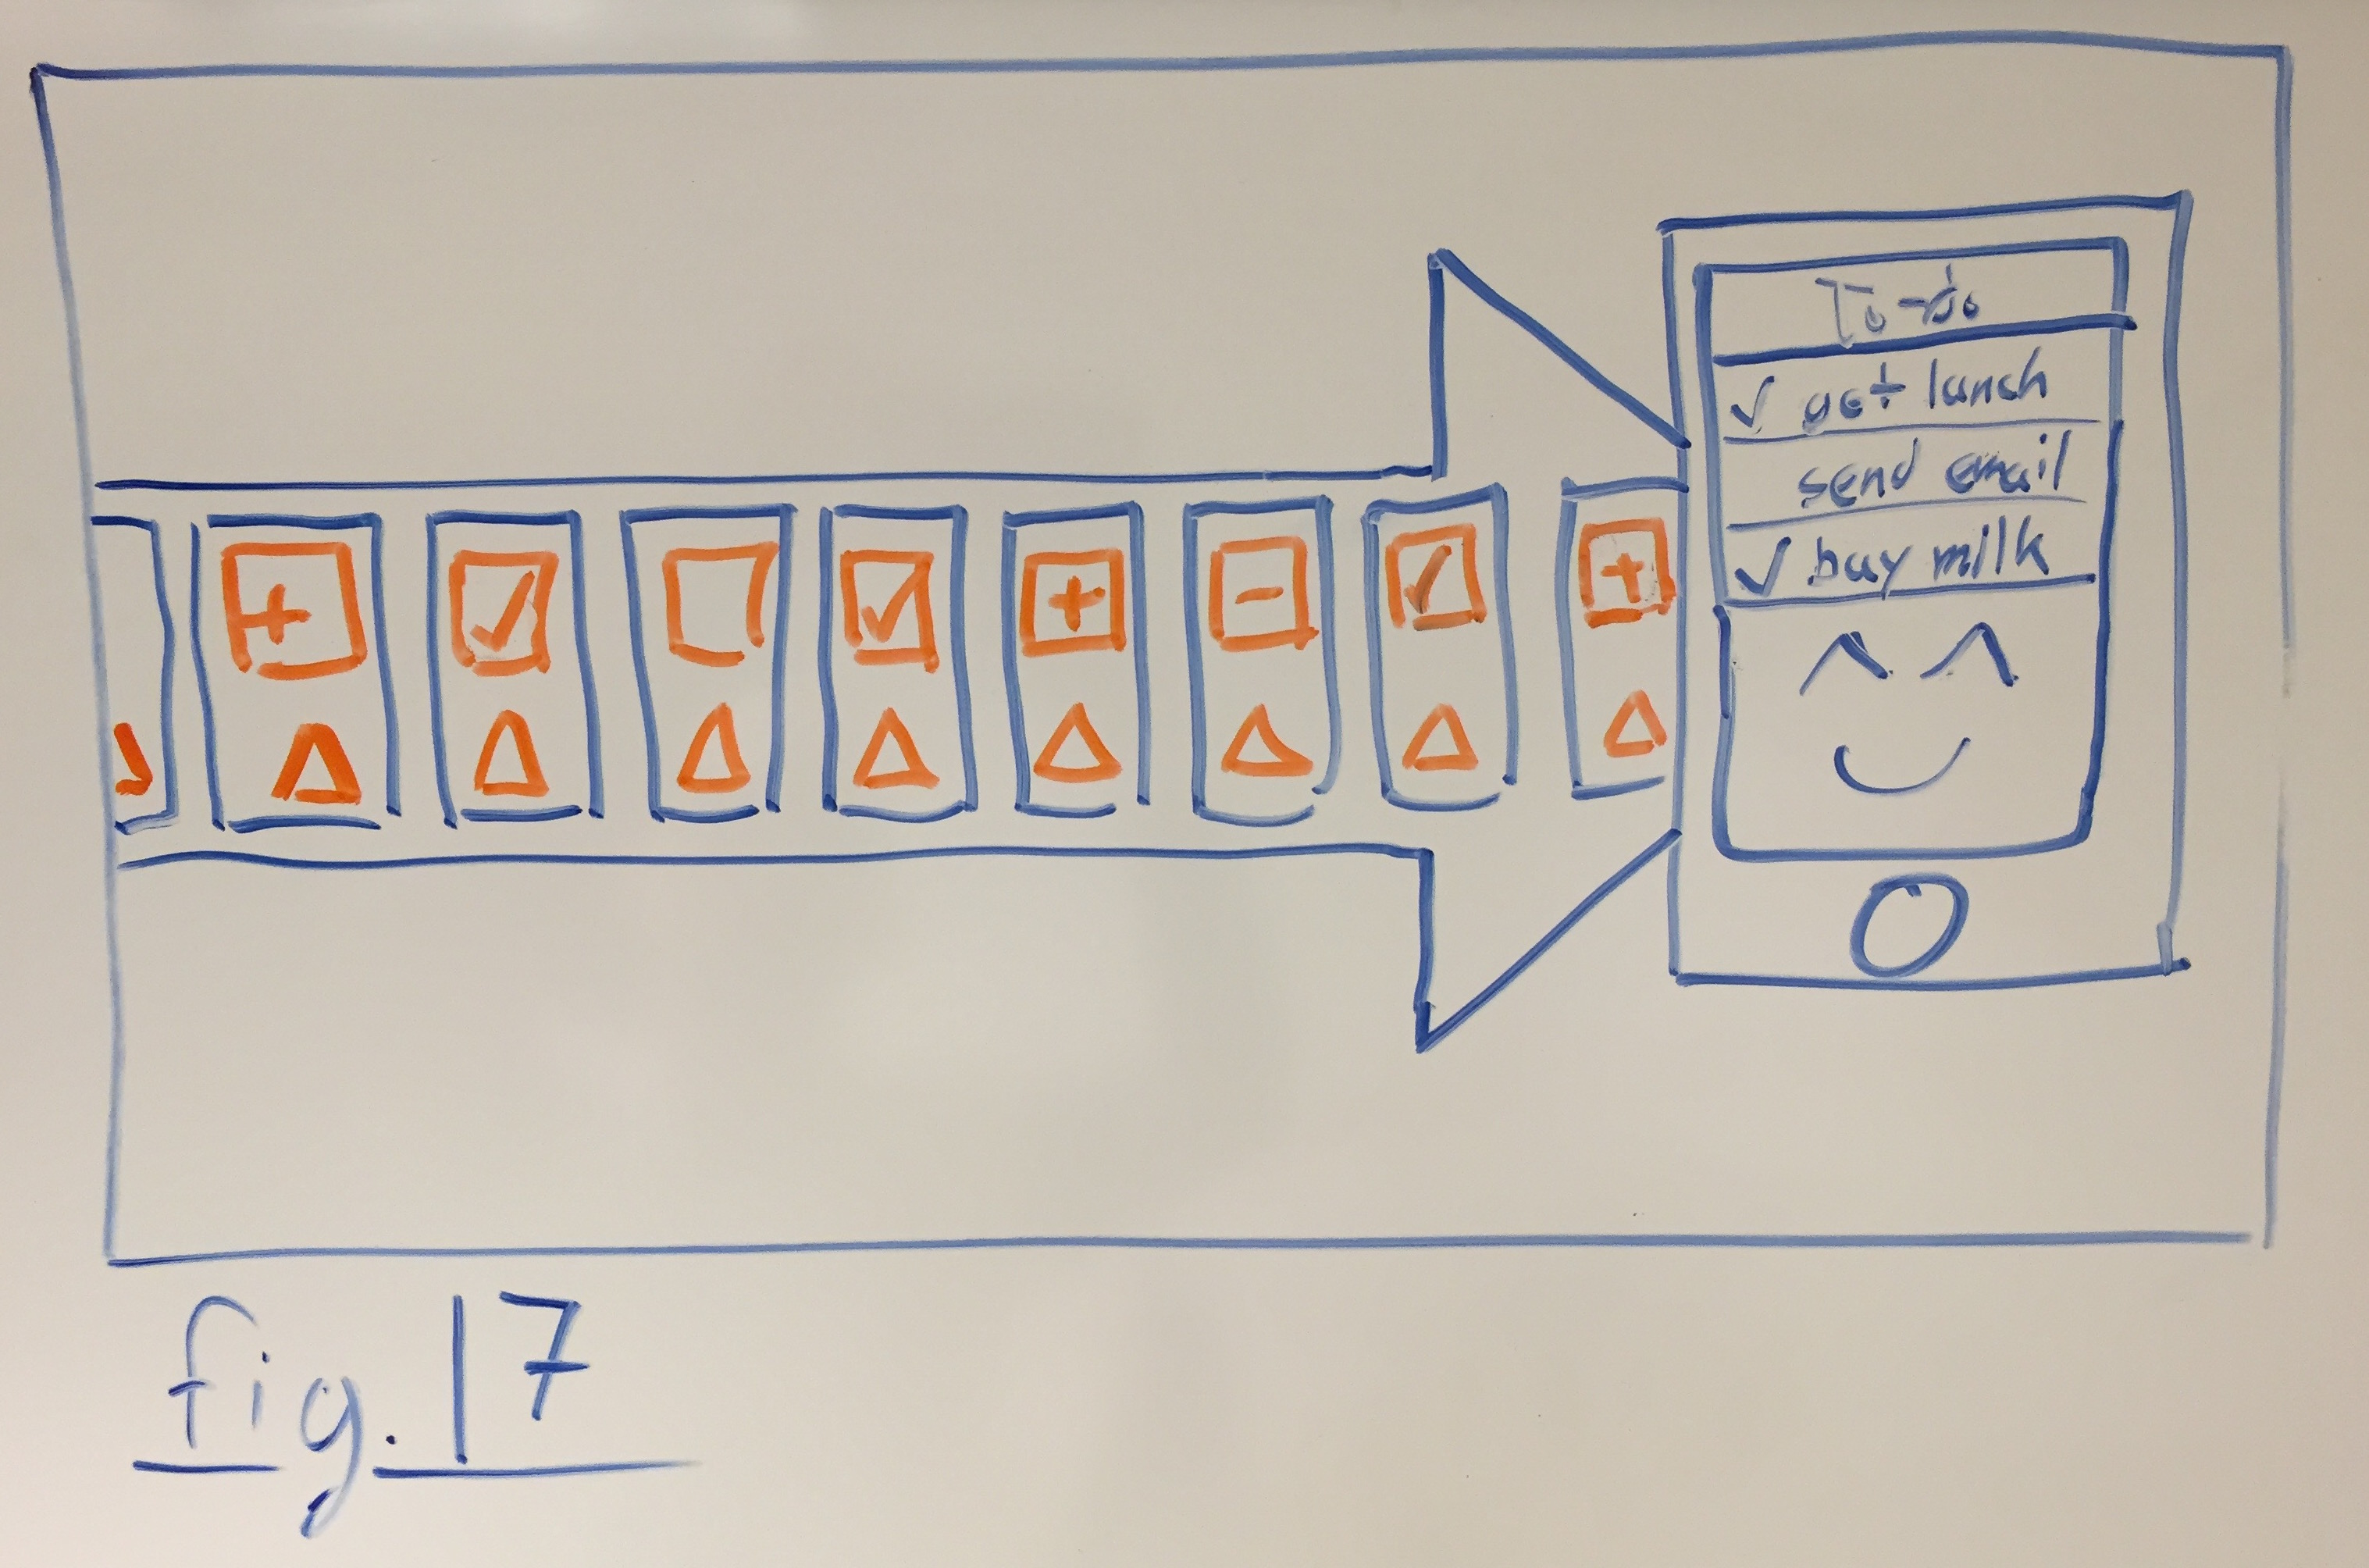 To-do
✓ get lunch
send email
✓ buy milk
fig. 17